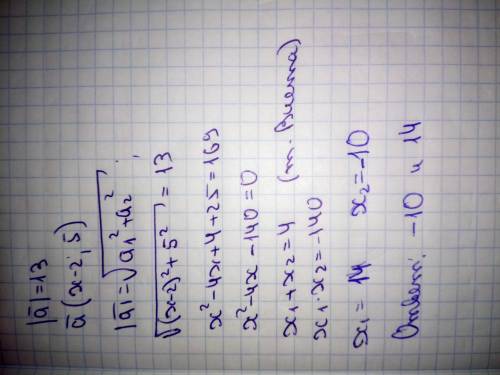 |ā|=13
ā (x-2; 5)
|ā|=√a₁²+a₂² ;
√(x-2)²+5² = 13
x²-4x+4+25=169
x²-4x-140=0
x₁+x₂=4 (т. Виета)
x₁·x₂=-140
x₁= 14 x₂=-10
Ответ: -10 и 14